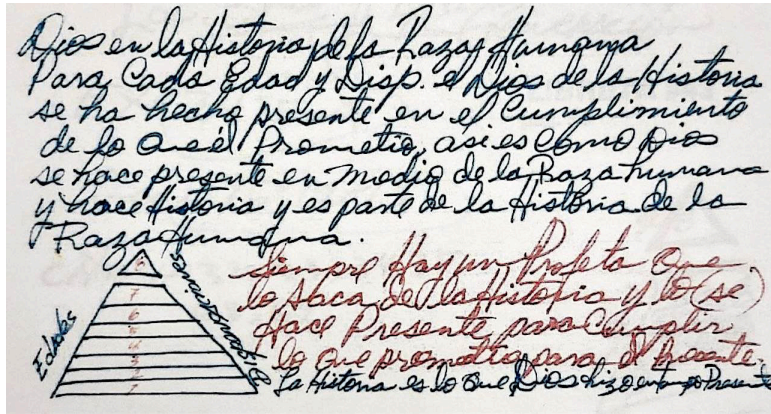 Dios en la Historia de la Raza Humana
Para Cada Edad y Disp. el Dios de la Historia
se ha hecho presente en el Cumplimiento
de lo que él Prometio, asi es como Dios
se hace presente en medio de la Raza humana
y hace Historia y es parte de la Historia de la
Raza Humana.
Siempre Hay un Profeta que
lo saca de la Historia y lo (se)
Hace Presente para Cumplir
lo que prometio para el presente.
La Historia es lo que Dios hizo en tiempo Presente
Edades
Dispensaciones
8
7
6
5
4
3
2
1